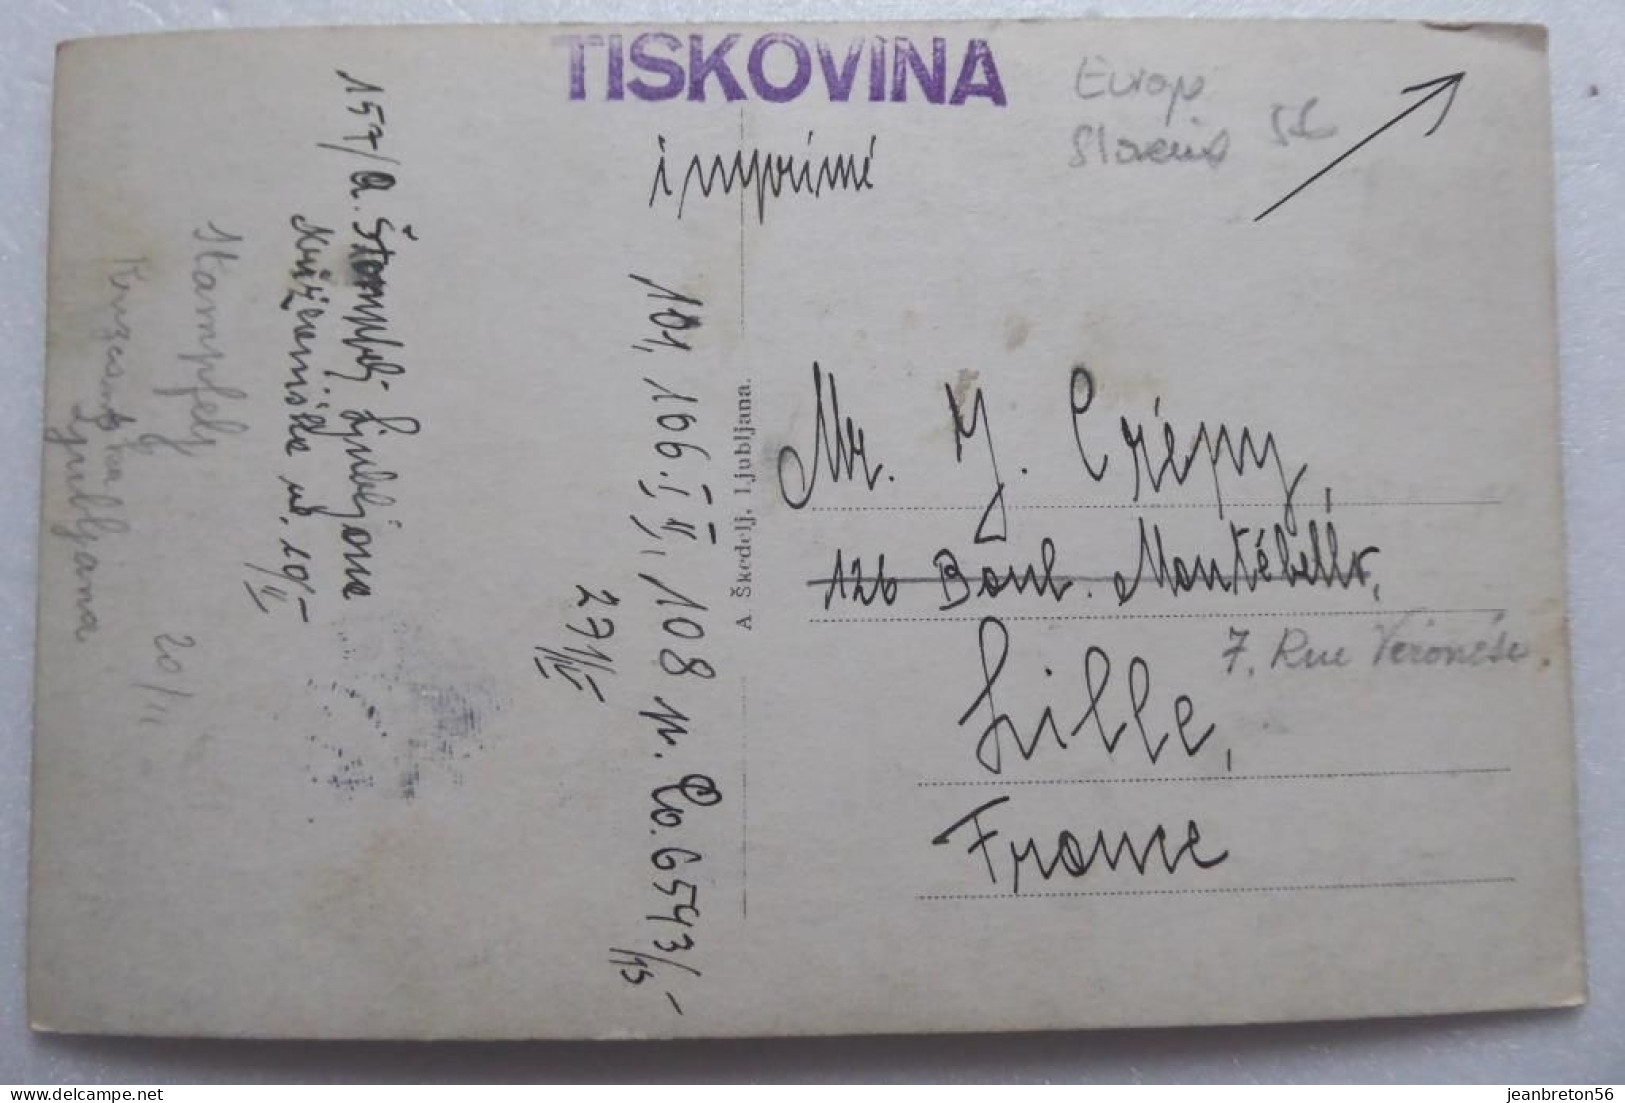 TISKOVINA
imprimé
Europe
Slovenie
157/A. Štampfelj Ljubljana
Križevniška ul. 10/II
Stampfelj
Ljubljana
20/II
101, 106. I II, 108 N. Co. 6543/-
A. Škedelj, Ljubljana.
Mr. J. Crépy,
126 Boul. Montébello,
7. Rue Véronèse.
Lille,
France
jeanbreton56